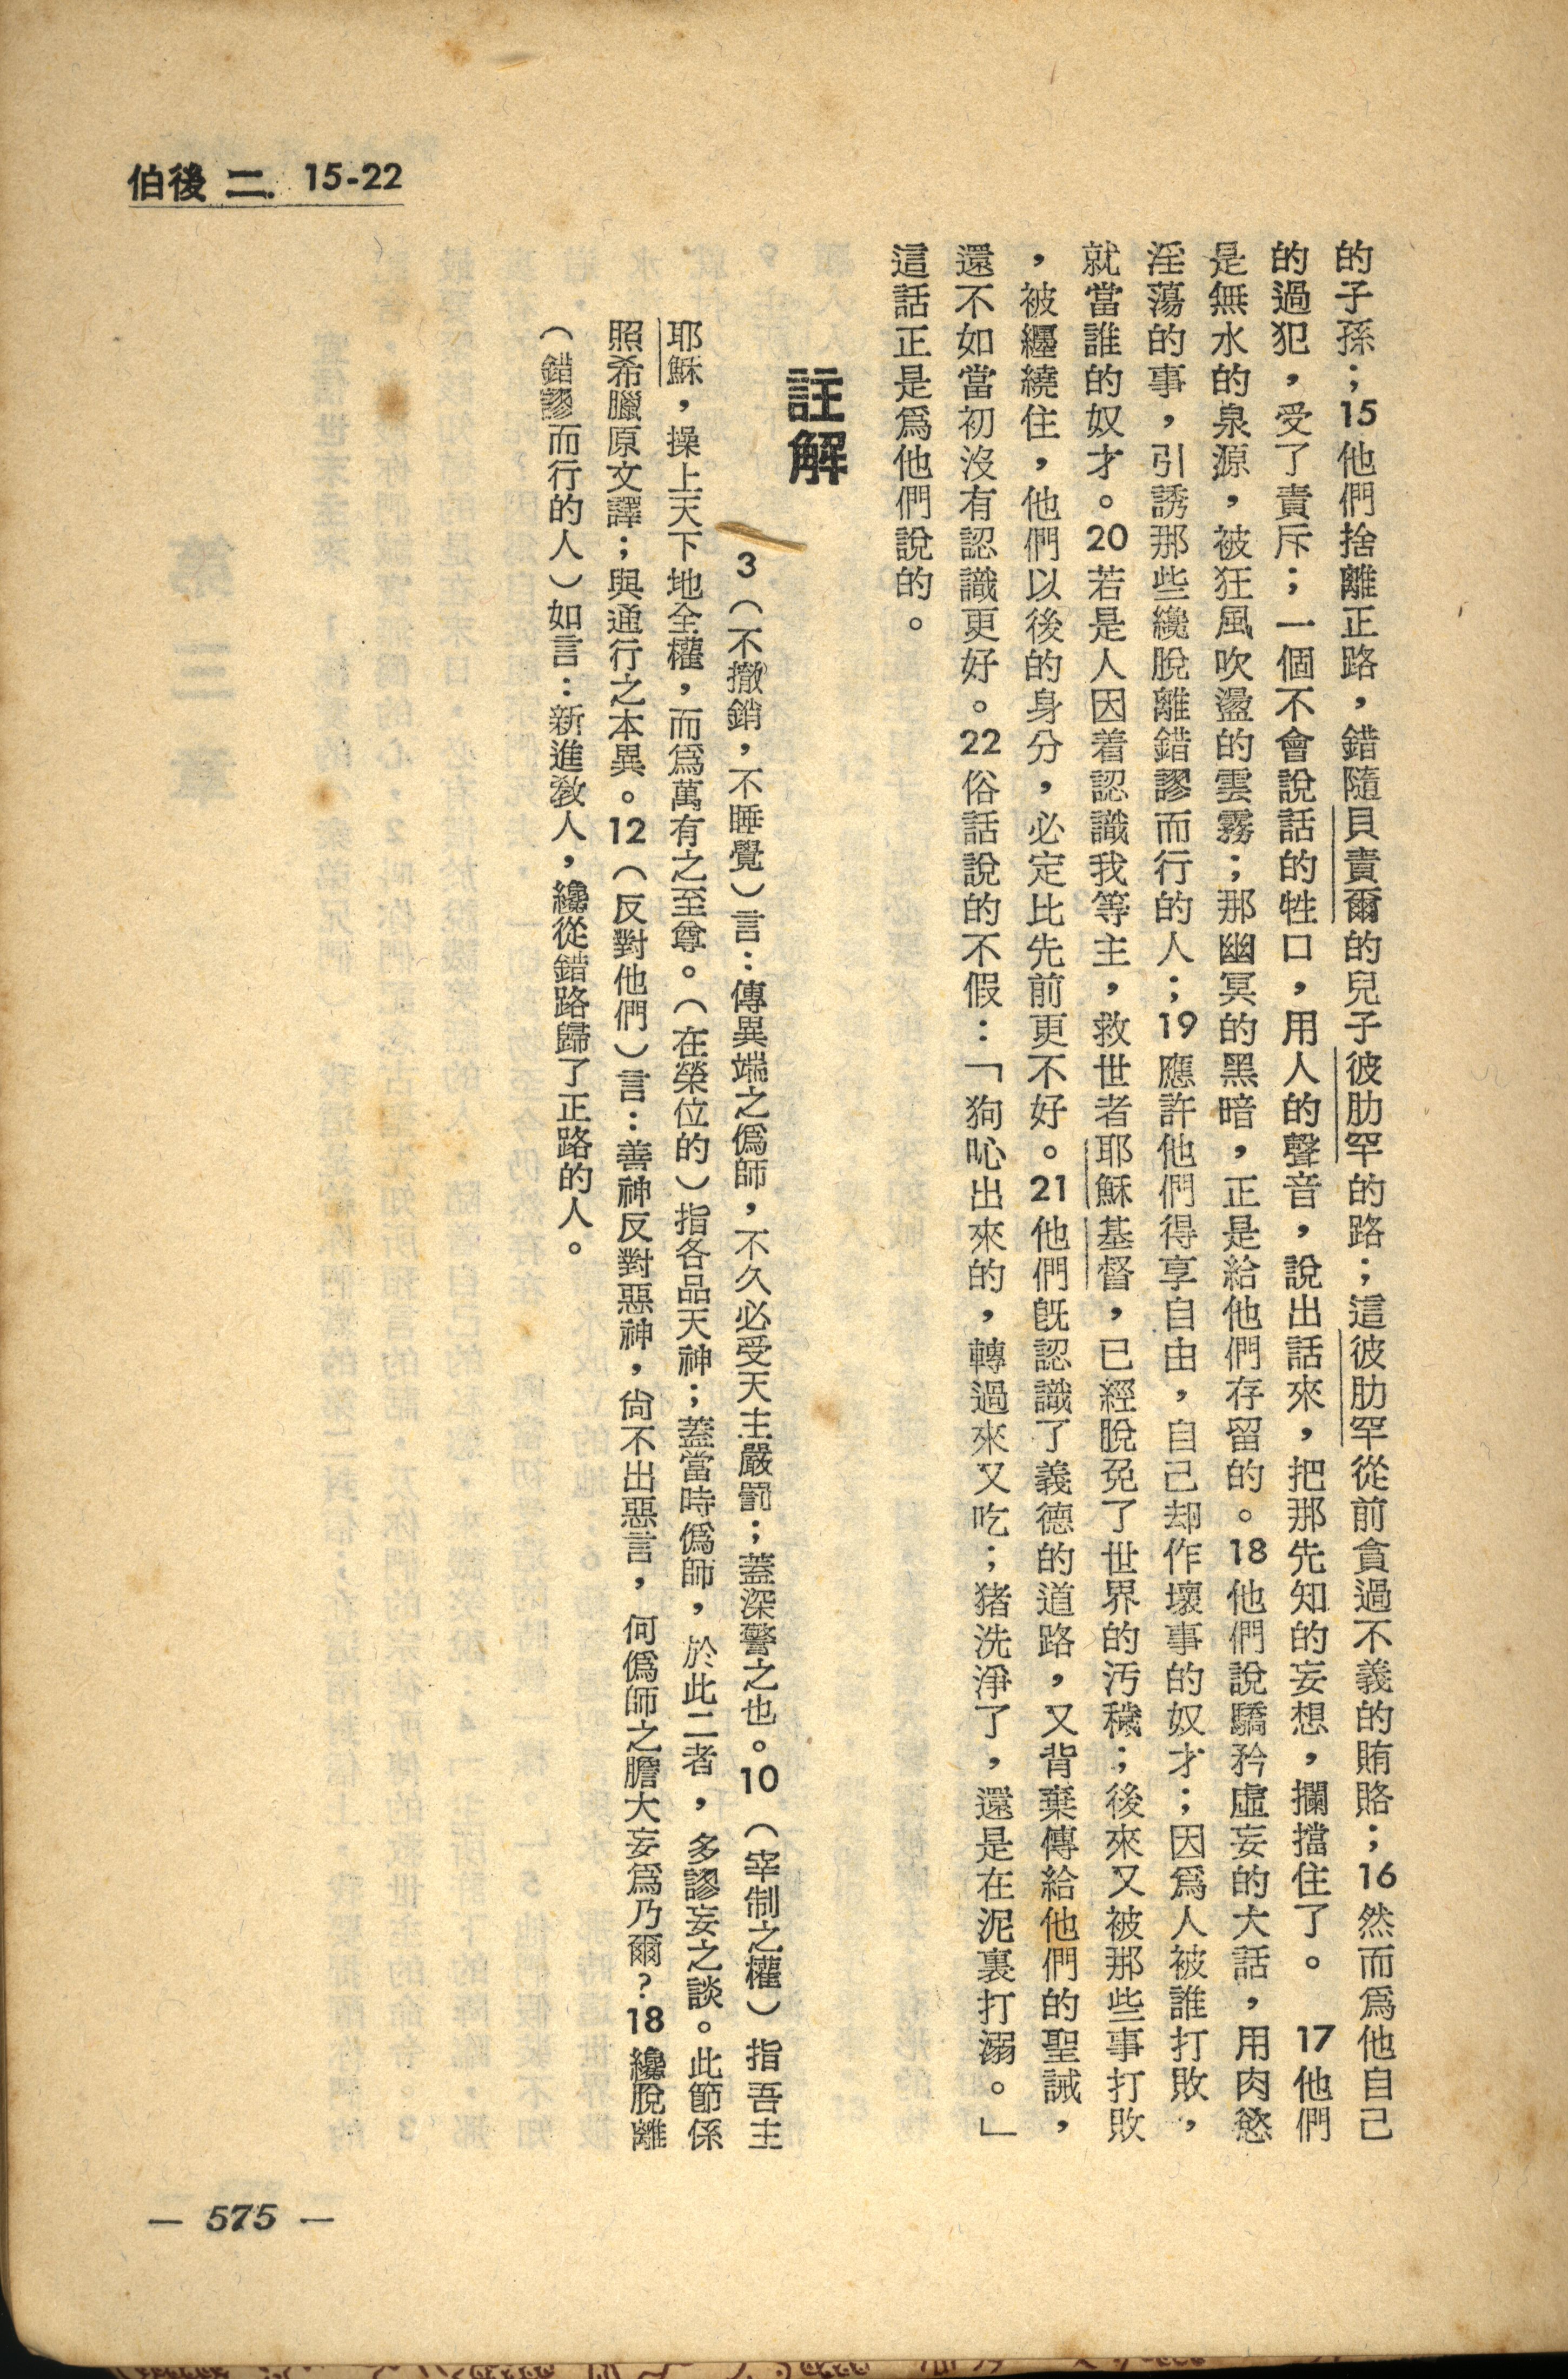 伯後 二. 15-22
的子孫；15他們捨離正路，錯隨貝責爾的兒子彼肋罕的路；這彼肋罕從前貪過不義的賄賂；16然而爲他自己
的過犯，受了責斥；一個不會說話的牲口，用人的聲音，說出話來，把那先知的妄想，攔擋住了。 17他們
是無水的泉源，被狂風吹盪的雲霧；那幽冥的黑暗，正是給他們存留的。18他們說驕矜虛妄的大話，用肉慾
淫蕩的事，引誘那些纔脫離錯謬而行的人；19應許他們得享自由，自己却作壞事的奴才；因爲人被誰打敗，
就當誰的奴才。20若是人因着認識我等主，救世者耶穌基督，已經脫免了世界的汚穢；後來又被那些事打敗
，被纏繞住，他們以後的身分，必定比先前更不好。21他們旣認識了義德的道路，又背棄傳給他們的聖誡，
還不如當初沒有認識更好。22俗話說的不假：「狗吣出來的，轉過來又吃；猪洗淨了，還是在泥裏打溺。」
這話正是爲他們說的。
註解
3（不撤銷，不睡覺）言：傳異端之僞師，不久必受天主嚴罰；蓋深警之也。10（宰制之權）指吾主
耶穌，操上天下地全權，而爲萬有之至尊。（在榮位的）指各品天神；蓋當時僞師，於此二者，多謬妄之談。此節係
照希臘原文譯；與通行之本異。12（反對他們）言：善神反對惡神，尙不出惡言，何僞師之膽大妄爲乃爾？18纔脫離
（錯謬而行的人）如言：新進敎人，纔從錯路歸了正路的人。
— 575 —